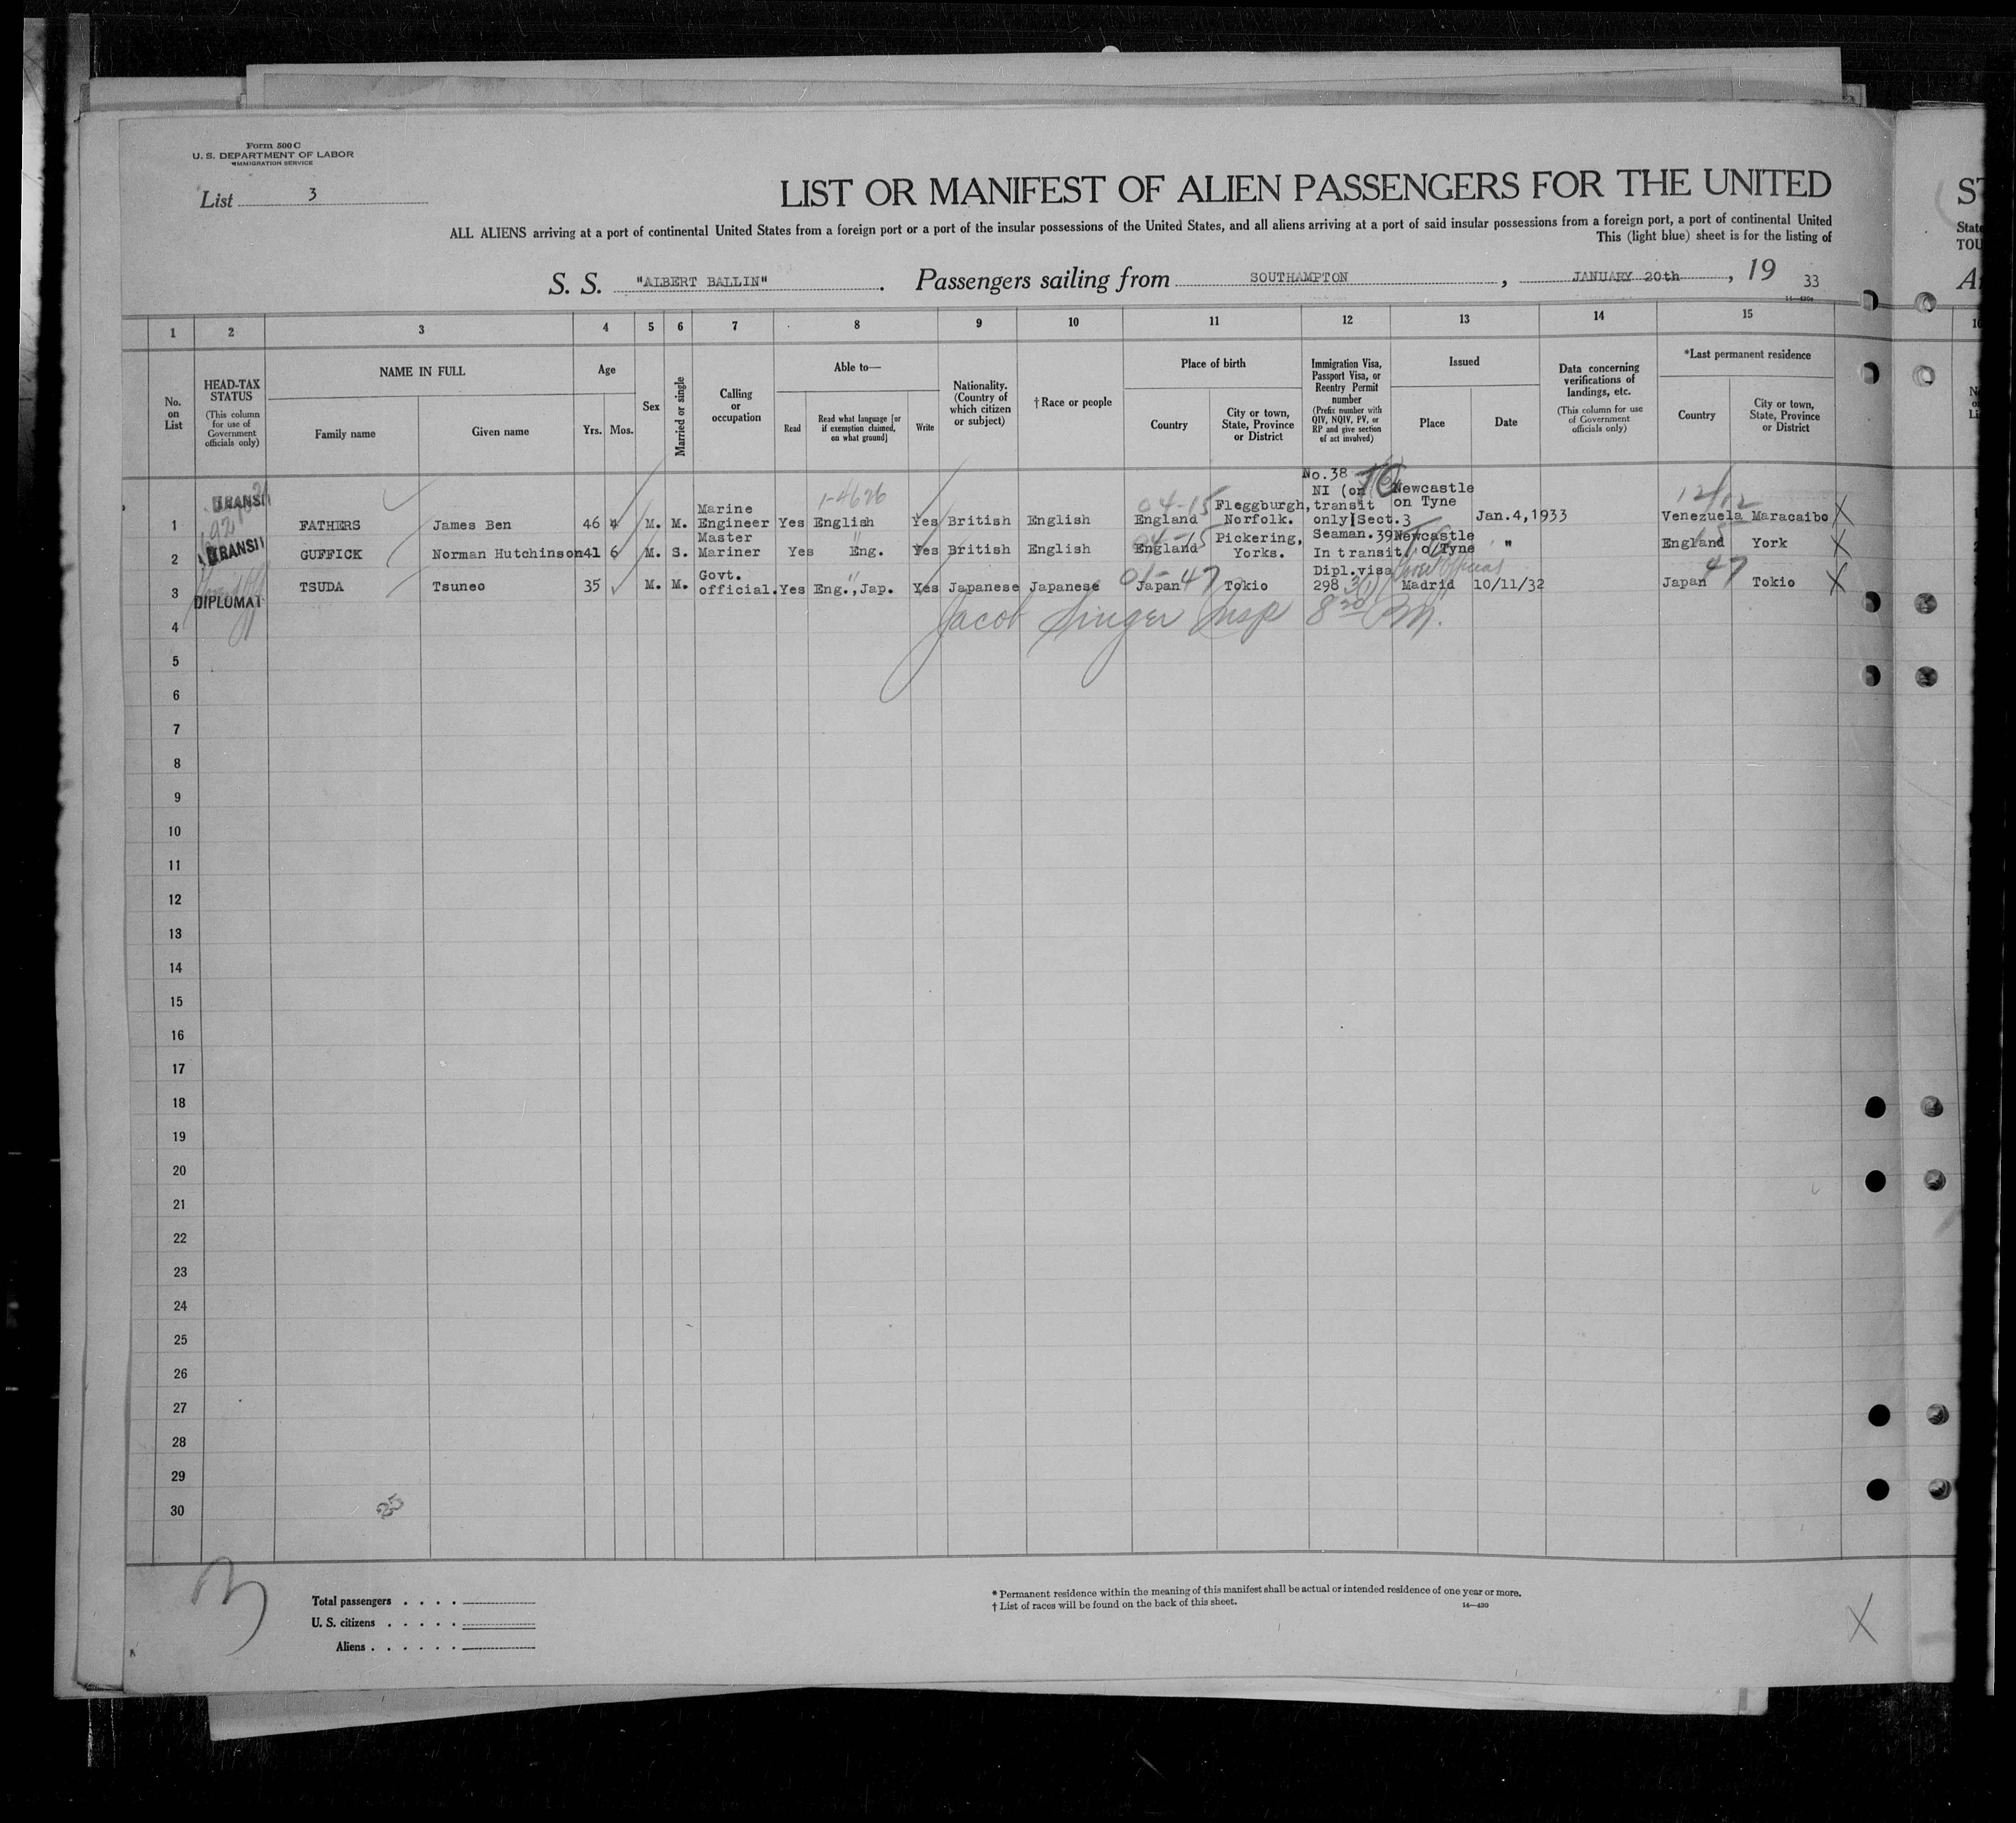 Form 500 C
U. S. DEPARTMENT OF LABOR
IMMIGRATION SERVICE
List 3
LIST OR MANIFEST OF ALIEN PASSENGERS FOR THE UNITED
ALL ALIENS arriving at a port of continental United States from a foreign port or a port of the insular possessions of the United States, and all aliens arriving at a port of said insular possessions from a foreign port, a port of continental United
This (light blue) sheet is for the listing of
S. S. "ALBERT BALLIN". Passengers sailing from SOUTHAMPTON, JANUARY 20th, 19 33
14—430a
1 2 3 4 5 6 7 8 9 10 11 12 13 14 15
No. on List
HEAD-TAX STATUS
(This column for use of Government officials only)
NAME IN FULL
Family name
Given name
Age
Yrs. Mos.
Sex
Married or single
Calling or occupation
Able to—
Read
Read what language [or if exemption claimed, on what ground]
Write
Nationality. (Country of which citizen or subject)
† Race or people
Place of birth
Country
City or town, State, Province or District
Immigration Visa, Passport Visa, or Reentry Permit number
(Prefix number with QIV, NQIV, PV, or RP and give section of act involved)
Issued
Place
Date
Data concerning verifications of landings, etc.
(This column for use of Government officials only)
*Last permanent residence
Country
City or town, State, Province or District
1-4626
04-15
No.38
NI (on transit only) Sect.3
1 TRANSIT FATHERS James Ben 46 4 M. M. Marine Engineer Yes English Yes British English England Fleggburgh, Norfolk. Newcastle on Tyne Jan.4,1933 Venezuela Maracaibo X
2 TRANSIT GUFFICK Norman Hutchinson 41 6 M. S. Master Mariner Yes Eng. Yes British English 04-15 England Pickering, Yorks. Seaman. 39 In transit Newcastle o/Tyne " England York X
3 DIPLOMAT TSUDA Tsuneo 35 M. M. Govt. official. Yes Eng.,Jap. Yes Japanese Japanese Japan 47 Tokio Dipl.visa 298 3(1) Madrid 10/11/32 Japan 47 Tokio X
Jacob Singer Insp 8 20 PM.
4
5
6
7
8
9
10
11
12
13
14
15
16
17
18
19
20
21
22
23
24
25
26
27
28
29
30
3
Total passengers . . . .
U. S. citizens . . . . .
Aliens . . . . . .
* Permanent residence within the meaning of this manifest shall be actual or intended residence of one year or more.
† List of races will be found on the back of this sheet.
14—430
X